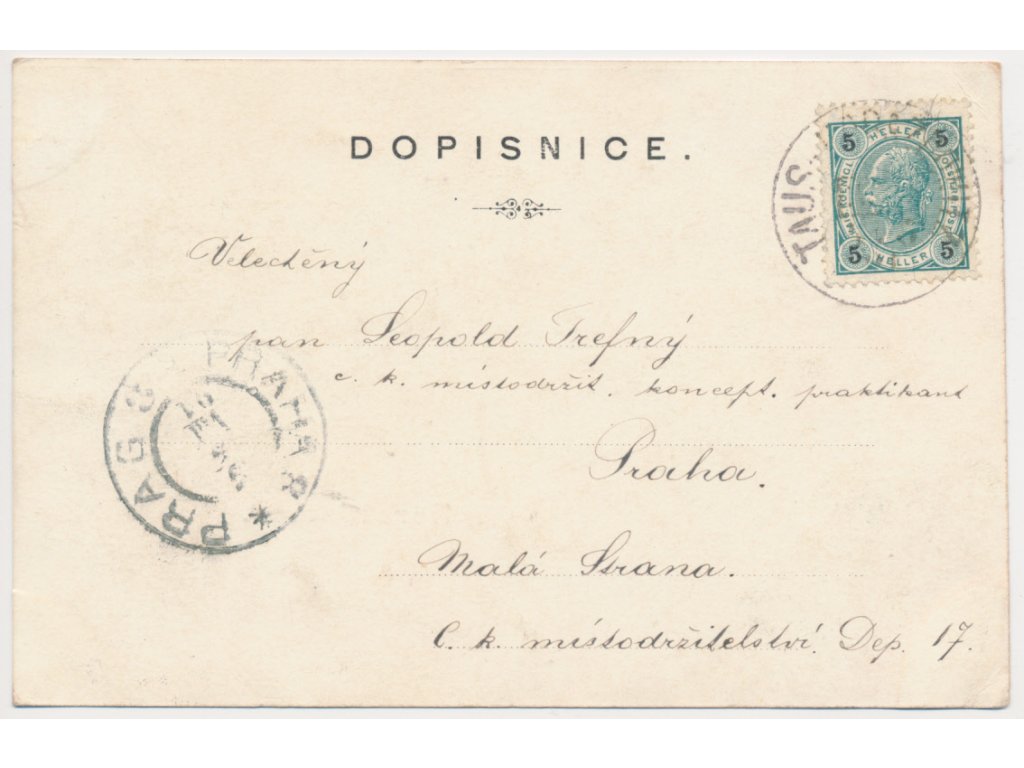 DOPISNICE.
5 HELLER 5
5 HELLER 5
TAUS
Velectěný
pan Leopold Trefný
c. k. místodržit. koncept. praktikant
Praha.
Malá Strana.
C. k. místodržitelství. Dep. 17.
PRAG 3 PRAHA